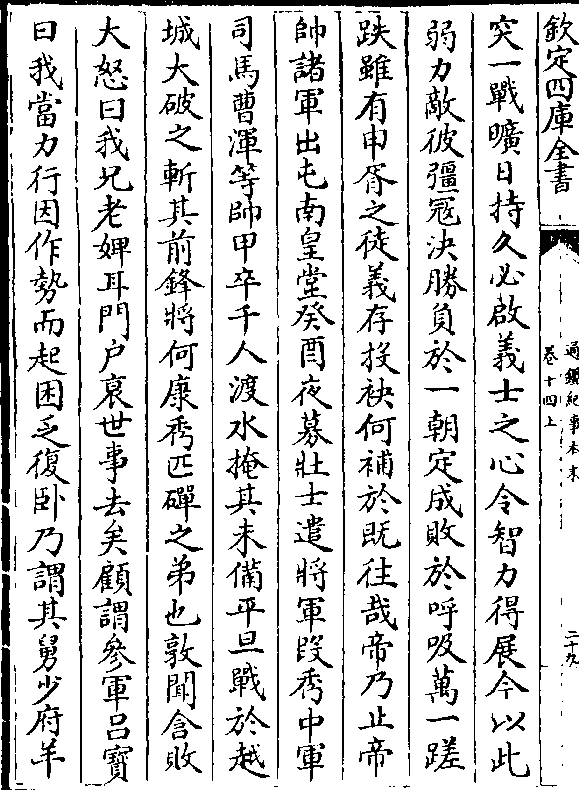 欽定四庫全書
通鑑紀事本末
卷十四上
二十九
突一戰曠日持久必啟義士之心令智力得展今以此
弱力敵彼彊寇決勝負於一朝定成敗於呼吸萬一蹉
跌雖有申胥之徒義存投袂何補於既往哉帝乃止帝
帥諸軍出屯南皇堂癸酉夜募壯士遣將軍段秀中軍
司馬曹渾等帥甲卒千人渡水掩其未備平旦戰於越
城大破之斬其前鋒將何康秀匹磾之弟也敦聞含敗
大怒曰我兄老婢耳門户衰世事去矣顧謂參軍吕寶
曰我當力行因作勢而起困乏復卧乃謂其舅少府羊